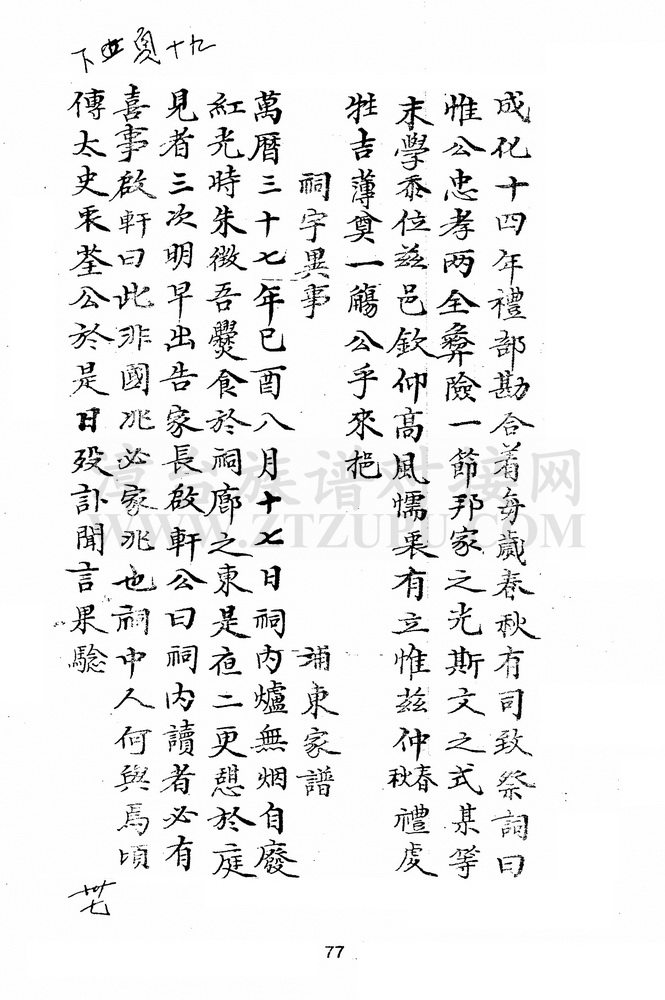 下 頁十九
成化十四年禮部勘合着每歲春秋有司致祭詞曰
惟公忠孝两全彝險一節邦家之光斯文之式某等
末學忝位兹邑欽仰高風懦裏有立惟兹仲春秋禮虔
牲吉薄奠一觴公乎來
祠宇異事 浦東家譜
萬曆三十七年己酉八月十七日祠内爐無烟自廢
紅光時朱徵吾爨食於祠廊之東是夜二更憇於庭
見者三次明早出告家長啟軒公曰祠内讀者必有
喜事啟軒曰此非國兆必家兆也祠中人何與焉頃
傳太史乘荃公於是日歿訃聞言果驗
卅七
77
唐谷族谱对接网
WWW.ZTZUPU.COM